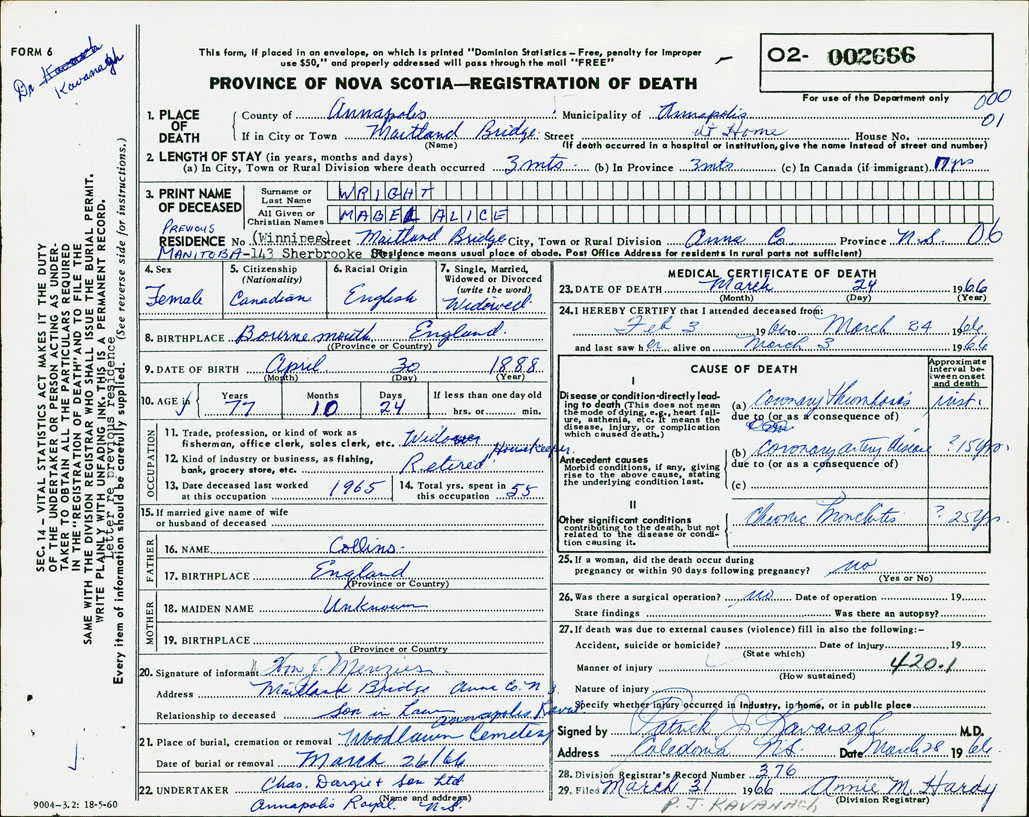 FORM 6
Dr Kavanagh
This form, if placed in an envelope, on which is printed "Dominion Statistics – Free, penalty for improper
use $50," and properly addressed will pass through the mail "FREE"
PROVINCE OF NOVA SCOTIA—REGISTRATION OF DEATH
02- 002666
For use of the Department only
000
01
1. PLACE OF DEATH
County of Annapolis Municipality of Annapolis
If in City or Town Maitland Bridge Street at Home House No.
(Name) (If death occurred in a hospital or institution, give the name instead of street and number)
2. LENGTH OF STAY (in years, months and days)
(a) In City, Town or Rural Division where death occurred 3 mts. (b) In Province 3 mts (c) In Canada (if immigrant) 17 yrs
3. PRINT NAME OF DECEASED
Surname or Last Name WRIGHT
All Given or Christian Names MABEL ALICE
PREVIOUS
RESIDENCE No (Winnipeg) Street Maitland Bridge City, Town or Rural Division Anna Co. Province N.S. 06
MANITOBA-143 Sherbrooke St. (Residence means usual place of abode. Post Office Address for residents in rural parts not sufficient)
4. Sex
Female
5. Citizenship
(Nationality)
Canadian
6. Racial Origin
English
7. Single, Married, Widowed or Divorced
(write the word)
Widowed
8. BIRTHPLACE Bournemouth England.
(Province or Country)
9. DATE OF BIRTH April 30 1888
(Month) (Day) (Year)
10. AGE in Years 77 Months 10 Days 24 If less than one day old
hrs. or min.
OCCUPATION
11. Trade, profession, or kind of work as
fisherman, office clerk, sales clerk, etc. Widower House Keeper.
12. Kind of industry or business, as fishing,
bank, grocery store, etc. Retired
13. Date deceased last worked
at this occupation 1965
14. Total yrs. spent in
this occupation 55
15. If married give name of wife
or husband of deceased
FATHER
16. NAME Collins.
17. BIRTHPLACE England
(Province or Country)
MOTHER
18. MAIDEN NAME Unknown
19. BIRTHPLACE
(Province or Country)
20. Signature of informant J. Menzies
Address Maitland Bridge Anna Co. N.S.
Relationship to deceased Son in Law
Annapolis Royal
21. Place of burial, cremation or removal Woodlawn Cemetery
Date of burial or removal March 26/66
22. UNDERTAKER Chas. Dargie & Son Ltd.
(Name and address)
Annapolis Royal N.S.
9004-3.2: 18-5-60
MEDICAL CERTIFICATE OF DEATH
23. DATE OF DEATH March 24 1966
(Month) (Day) (Year)
24. I HEREBY CERTIFY that I attended deceased from:
Feb 3 1966 to March 24 1966
and last saw her alive on March 3 1966
CAUSE OF DEATH
Approximate interval between onset and death
I
Disease or condition directly leading to death (This does not mean the mode of dying, e.g., heart failure, asthenia, etc. It means the disease, injury, or complication which caused death.)
(a) Coronary Thrombosis inst.
due to (or as a consequence of)
Antecedent causes
Morbid conditions, if any, giving rise to the above cause, stating the underlying condition last.
(b) Coronary artery disease ?15 yrs
due to (or as a consequence of)
(c)
II
Other significant conditions contributing to the death, but not related to the disease or condition causing it.
Chronic Bronchitis ? 25 yrs.
25. If a woman, did the death occur during
pregnancy or within 90 days following pregnancy? no
(Yes or No)
26. Was there a surgical operation? no Date of operation 19
State findings Was there an autopsy?
27. If death was due to external causes (violence) fill in also the following:–
Accident, suicide or homicide? Date of injury 19
(State which)
Manner of injury 420.1
(How sustained)
Nature of injury
Specify whether injury occurred in industry, in home, or in public place
Signed by Patrick J Kavanagh M.D.
Address Caledonia N.S. Date March 28 1966
28. Division Registrar's Record Number 376
29. Filed March 31 1966 Annie M. Hardy
(Division Registrar)
P. J. KAVANAGH
SEC. 14 – VITAL STATISTICS ACT MAKES IT THE DUTY
OF THE UNDERTAKER OR PERSON ACTING AS UNDER-
TAKER TO OBTAIN ALL THE PARTICULARS REQUIRED
IN THE "REGISTRATION OF DEATH" AND TO FILE THE
SAME WITH THE DIVISION REGISTRAR WHO SHALL ISSUE THE BURIAL PERMIT.
WRITE PLAINLY WITH UNFADING INK. THIS IS A PERMANENT RECORD.
Letter re previous residence
Every item of information should be carefully supplied. (See reverse side for instructions.)